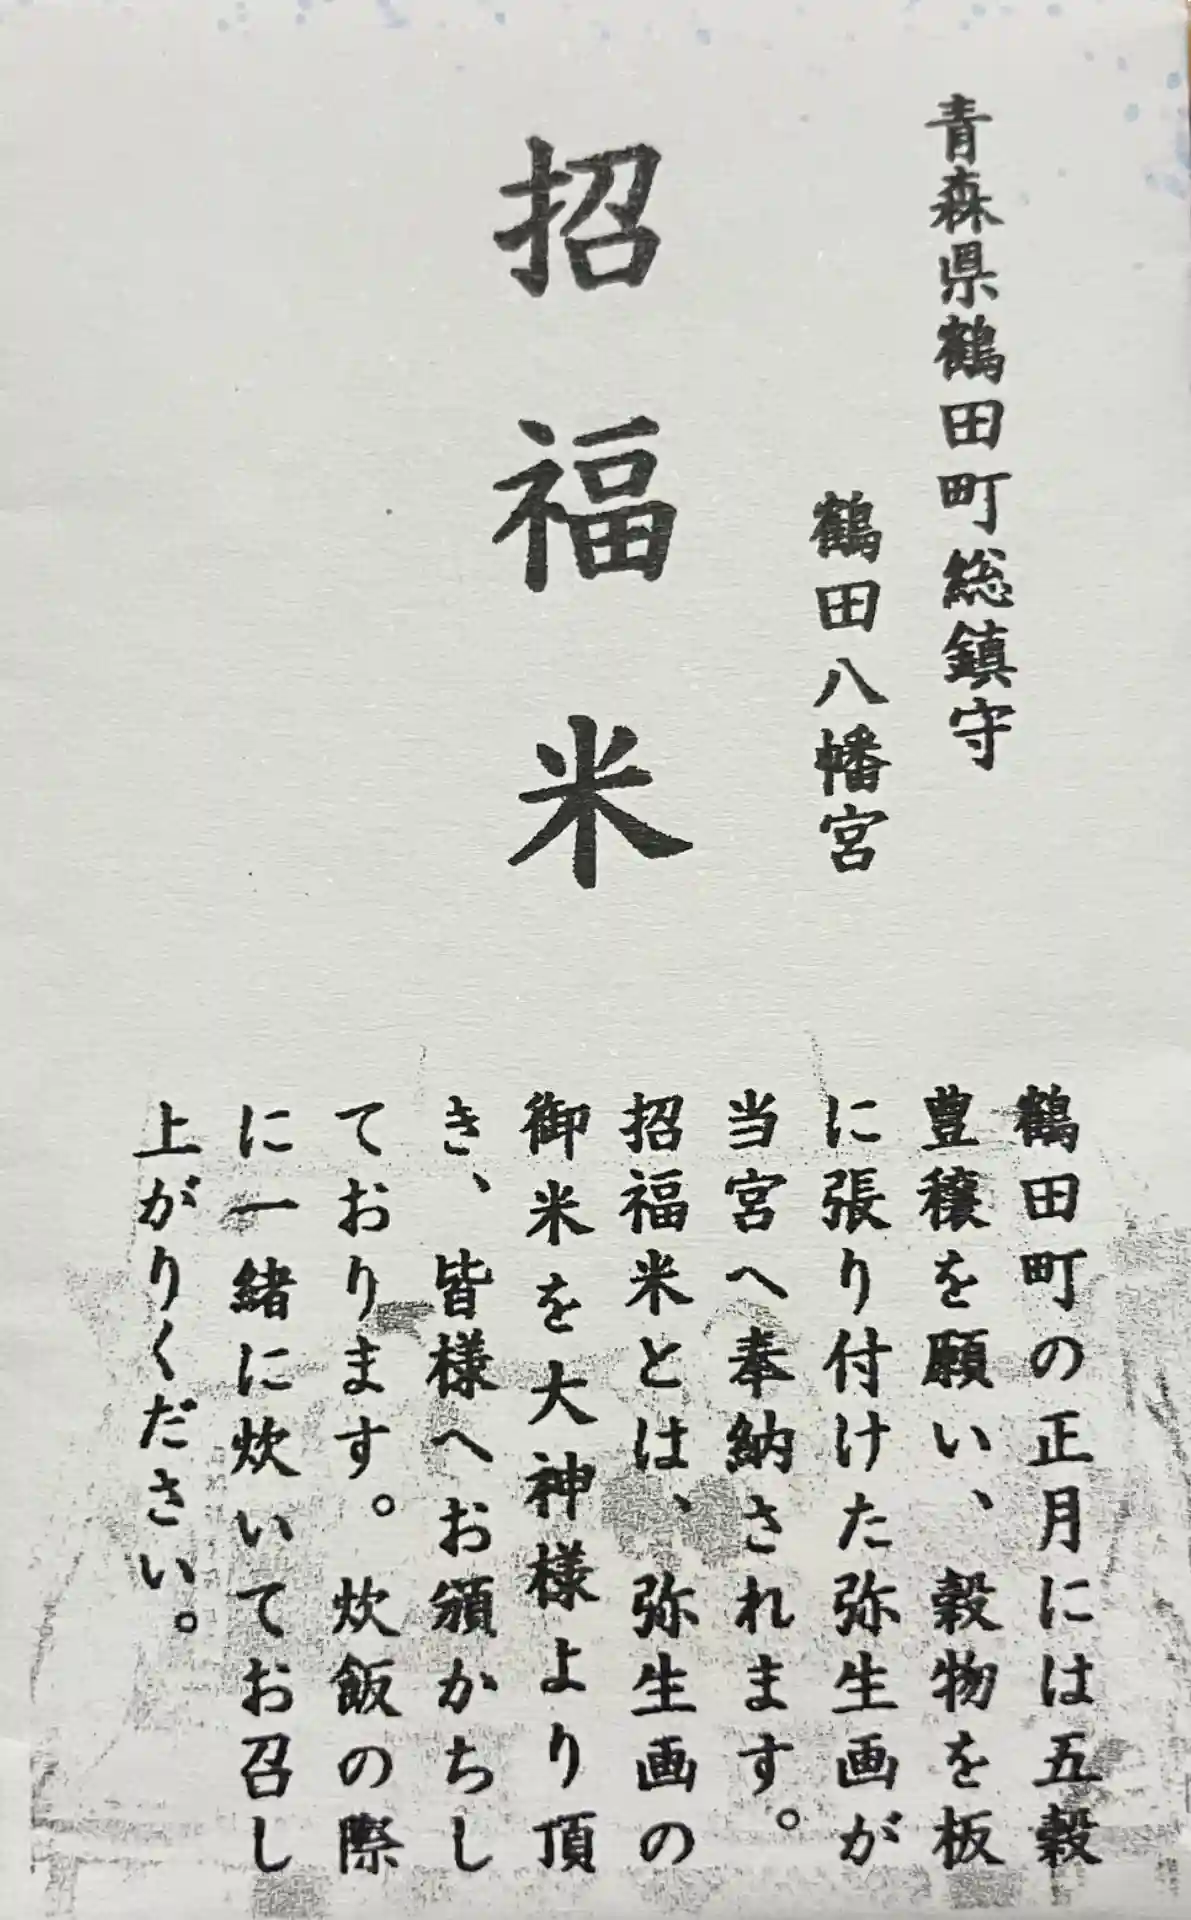 青森県鶴田町総鎮守
鶴田八幡宮
招福米
鶴田町の正月には五穀
豊穣を願い、穀物を板
に張り付けた弥生画が
当宮へ奉納されます。
招福米とは、弥生画の
御米を大神様より頂
き、皆様へお頒かちし
ております。炊飯の際
に一緒に炊いてお召し
上がりください。